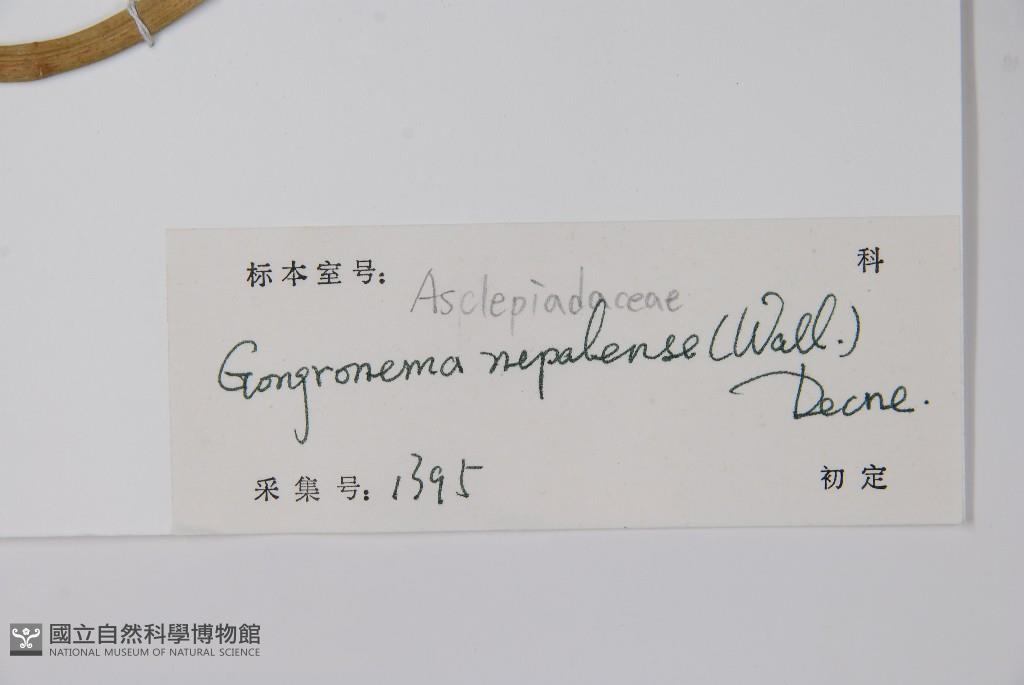 标本室号： 科
Asclepiadaceae
Gongronema nepalense (Wall.)
Decne.
采集号： 1395 初定
國立自然科學博物館
NATIONAL MUSEUM OF NATURAL SCIENCE